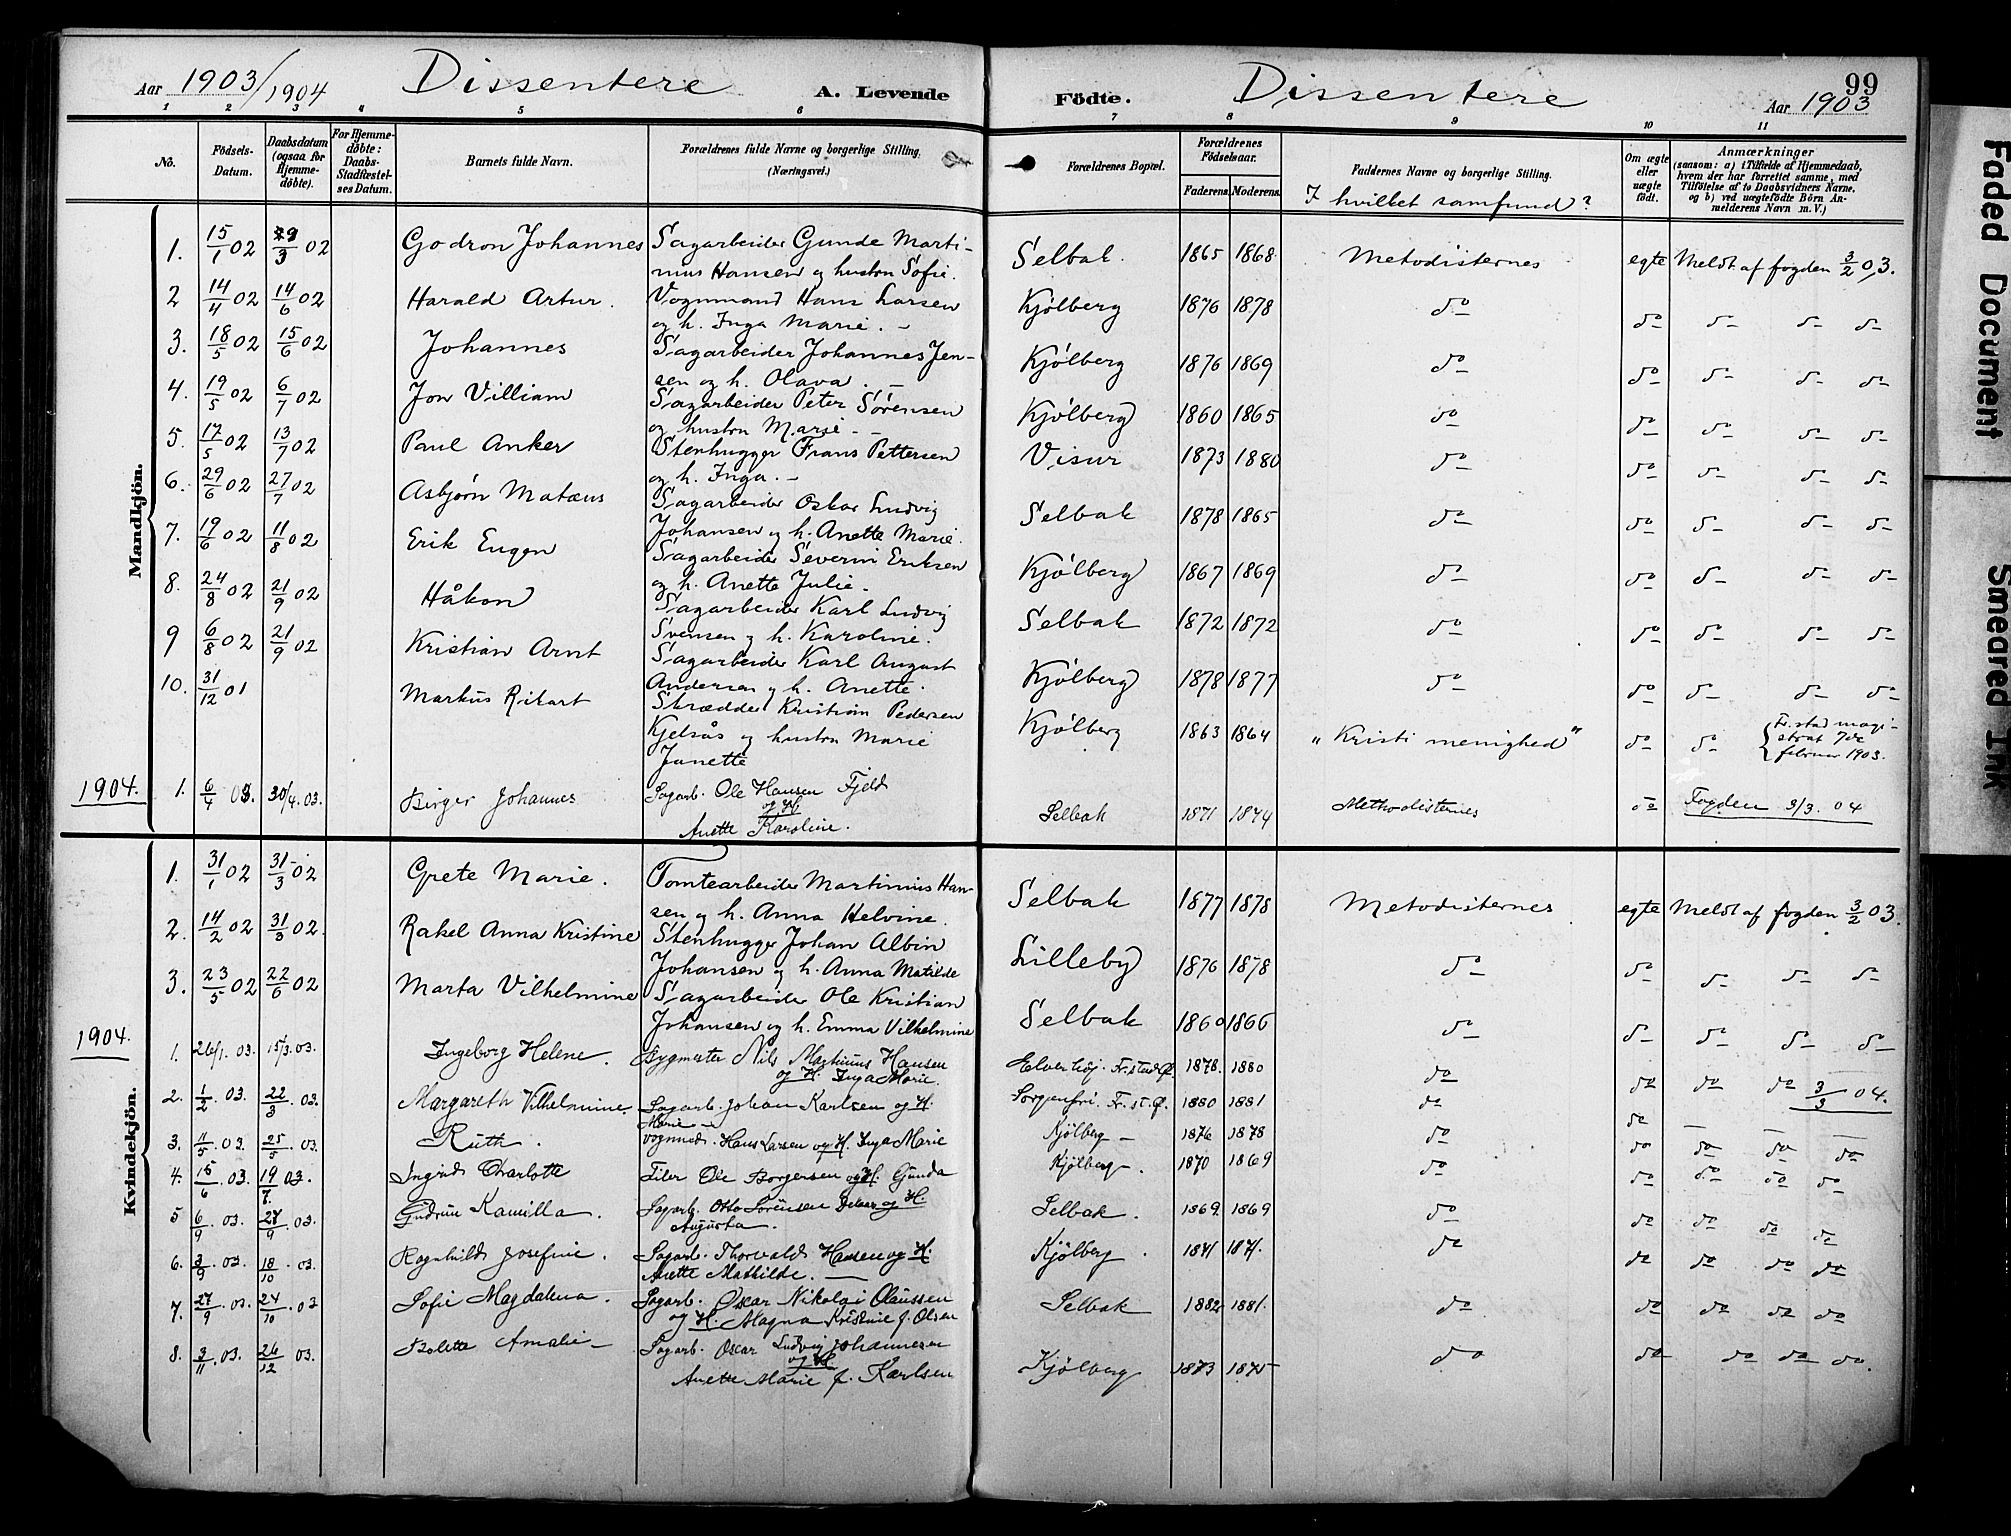 Aar 1903/1904 Dissentere A. Levende
Födte. Dissentere Aar 1903
99
1 2 3 4 5 6 7 8 9 10 11
No. Födsels-Datum. Daabsdatum (ogsaa for Hjemme-döbte). For Hjemme-döbte: Daabs-Stadfæstel-ses Datum. Barnets fulde Navn. Forældrenes fulde Navne og borgerlige Stilling. (Næringsvei.)
Forældrenes Bopæl. Forældrenes Födselsaar. Faderens. Moderens. Faddernes Navne og borgerlige Stilling. Om ægte eller uægte födt. Anmærkninger
(saasom: a) i Tilfælde af Hjemmedaab, hvem der har forrettet samme, med Tilföielse af to Daabsvidners Navne, og b) ved uægtefödte Börn An-melderens Navn m. V.)
I hvilket samfund?
Mandkjön.
1. 15/1 02 /3 02 Godron Johannes Sagarbeider Gunde Marti-
nius Hansen og hustru Sofie. Selbak. 1865 1868 Metodisternes egte Meldt af fogden 3/2 03.
2 14/4 02 14/6 02 Harald Artur. Vognmand Hans Larsen
og h. Inga Marie. – Kjølberg 1876 1878 do do do do do
3. 18/5 02 15/6 02 Johannes Sagarbeider Johannes Jen-
sen og h. Olava. – Kjølberg 1876 1869 do do do do do
4. 19/5 02 6/7 02 Jon Villiam Sagarbeider Peter Sørensen
og hustru Marie – Kjølberg 1860 1865 do do do do do
5. 17/5 02 13/7 02 Paul Anker Stenhugger Frans Pettersen
og h. Inga. – Visur 1873 1880 do do do do do
6. 29/6 02 27/7 02 Asbjørn Matæus Sagarbeider Oskar Ludvig
Johansen og h. Anette Marie. Selbak 1878 1865 do do do do do
7. 19/6 02 11/8 02 Erik Eugen Sagarbeider Severin Eriksen
og h. Anette Julie. Kjølberg 1867 1869 do do do do do
8. 24/8 02 21/9 02 Håkon Sagarbeider Karl Ludvig
Svensen og h. Karoline. Selbak 1872 1872 do do do do do
9 6/8 02 21/9 02 Kristian Arnt Sagarbeider Karl August
Andersen og h. Anette. Kjølberg 1878 1877 do do do do do
10. 31/12 01 Markus Rikart Skrædder Kristian Pedersen
Kjelsås og hustru Marie
Janette Kjølberg 1863 1864 „Kristi menighed" do do Fr.stad magi-
strat 7de
februar 1903.
1904. 1. 6/4 03. 30/4. 03. Birger Johannes Sagarb. Ole Hansen Fjeld
og H.
Anette Karoline. Selbak 1871 1874 Methodisternes do Fogden 3/3. 04
Kvindekjön.
1. 31/1 02 31/3 02 Grete Marie. Tomtearbeider Martinius Han-
sen og h. Anna Helvine. Selbak 1877 1878 Metodisternes egte Meldt af fogden 3/2 03.
2. 14/2 02 31/3 02. Rakel Anna Kristine Stenhugger Johan Albin
Johansen og h. Anna Matilde Lilleby 1876 1878 do do do do do
3. 23/5 02 22/6 02 Marta Vilhelmine Sagarbeider Ole Kristian
Johansen og h. Emma Vilhelmine Selbak 1860 1866 do do do do do
1904. 1. 26/1. 03. 15/3. 03. Ingeborg Helene. Bygmester Nils Martinius Hansen
og H. Inga Marie. Elverhöj. Fr.stad 1878. 1880 do do do do 3/3 04.
2. 1/2 . 03. 22/3 . 03. Margareth Vilhelmine. Sagarb. Johan Karlsen og H.
Marie – Sorgenfri. Fr.st. 1880 1881 do do
3. 11/5 . 03. 25/5 . 03. Ruth. Vognmd. Hans Larsen og H. Inga Marie Kjölberg – 1876 1878 do do do do do
4. 15/6 . 03. 19/7. 03. Ingrid Charlotte Filer Ole Borgersen og H. Gunda Kjölberg – . 1870 1869 do do do do do
5 6/9 . 03. 27/9 . 03. Gudrun Kamilla. Sagarb. Otto Sörensen og H.
Augusta. Selbak. 1869. 1869 do do do do do
6. 3/9 . 03. 18/10 . 03. Ragnhild Josefine. Sagarb. Thorvald Hansen og H.
Anette Mathilde. Kjölberg. 1871 1871. do do do do do
7. 27/9 . 03. 24/10 . 03 Sofie Magdalena. Sagarb. Oscar Nikolai Olaussen
og H. Magna Kristine f. Olsen Selbak 1882 1881. do do do do do
8. 3/11 . 03. 26/12 03. Bolette Amalie – Sagarb. Oscar Ludvig Johannesen
og H.
Anette Marie f. Karlsen Kjölberg 1873 1875 do do do do do
Faded Document
Smeared Ink